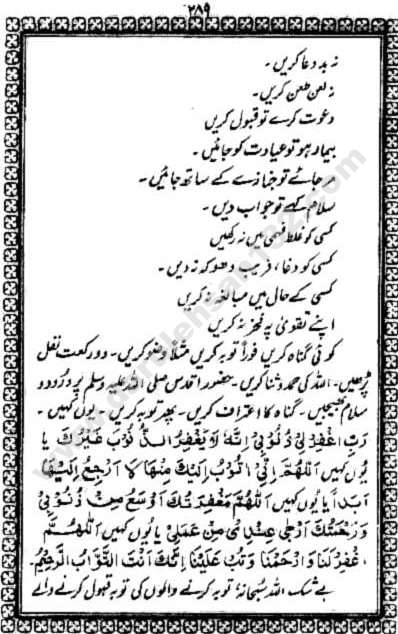 ۲۸۹
نہ بد دعا کریں ۔
نہ لعن طعن کریں ۔
دعوت کرے تو قبول کریں
بیمار ہو تو عیادت کو جائیں ۔
مر جائے تو جنازے کے ساتھ جائیں ۔
سلام کہے تو جواب دیں ۔
کسی کو غلط فہمی میں نہ رکھیں
کسی کو دغا، فریب دھوکہ نہ دیں ۔
کسی کے حال میں مبالغہ نہ کریں
اپنے تقویٰ پہ فخر نہ کریں
کوئی گناہ کریں فوراً توبہ کریں مثلاً وضو کریں ۔ دو رکعت نفل
پڑھیں ۔ اللہ کی حمد و ثنا کریں ۔ حضور اقدس صلی اللہ علیہ وسلم پر درود و
سلام بھیجیں ۔ گناہ کا اعتراف کریں ۔ پھر توبہ کریں ۔ یوں کہیں ۔
رَبِّ اغْفِرْ لِیْ ذُنُوْبِیْ اِنَّهٗ لَا یَغْفِرُ الذُّنُوْبَ غَیْرُكَ یا
یوں کہیں اَللّٰهُمَّ اِنِّیْ اَتُوْبُ اِلَیْكَ مِنْهَا لَا اَرْجِعُ اِلَیْهَا
اَبَدًا یا یوں کہیں اَللّٰهُمَّ مَغْفِرَتُكَ اَوْسَعُ مِنْ ذُنُوْبِیْ
وَرَحْمَتُكَ اَرْجٰی عِنْدِیْ مِنْ عَمَلِیْ یا یوں کہیں اَللّٰهُمَّ
اغْفِرْلَنَا وَارْحَمْنَا وَتُبْ عَلَیْنَا اِنَّكَ اَنْتَ التَّوَّابُ الرَّحِیْمُ
بے شک اللہ سُبحانہٗ توبہ کرنے والوں کی توبہ قبول کرنے والے